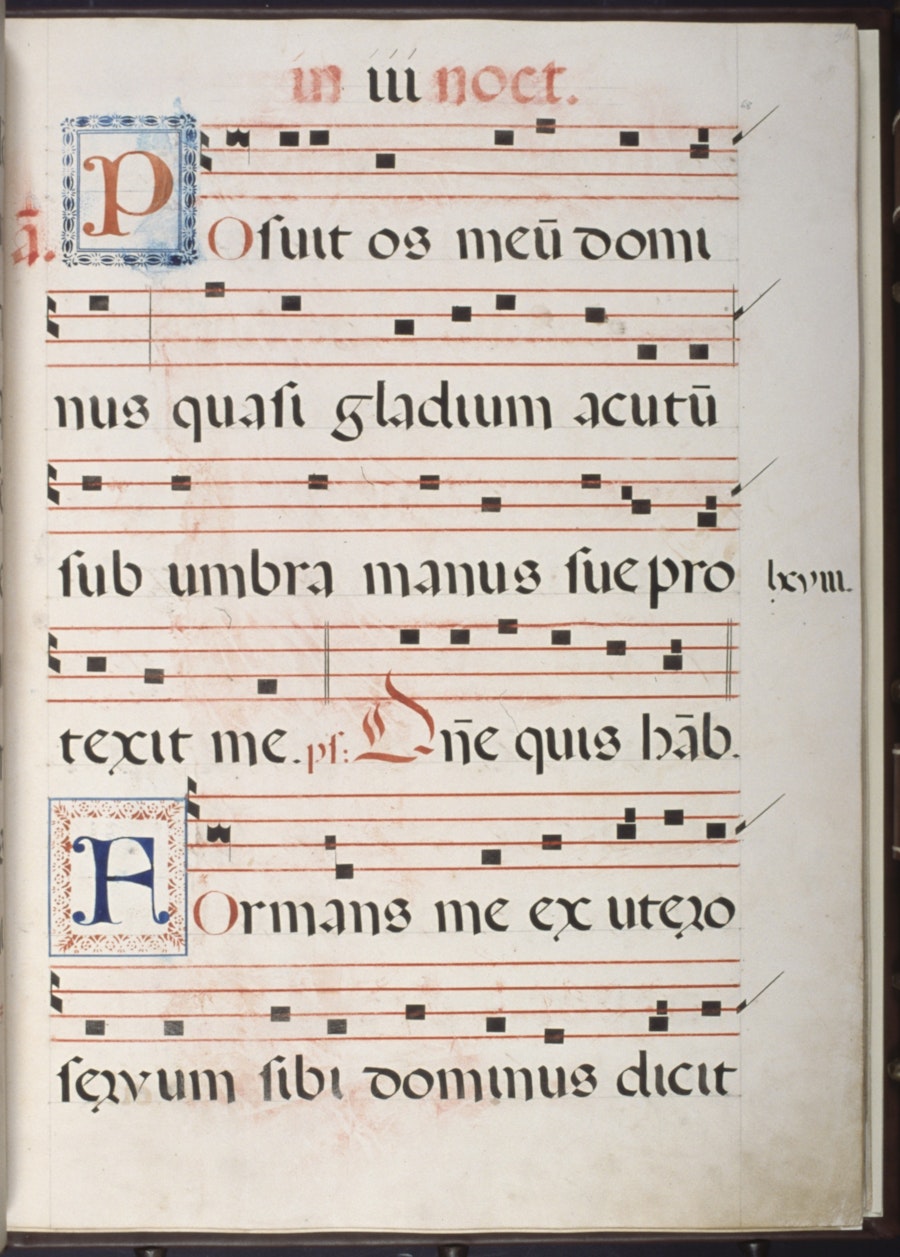 in iii noct.
ā. POſuit os meū domi
nus quaſi gladium acutū
ſub umbra manus ſue pro
lxviii.
texit me. pſ: Dn̄e quis hāb.
FOrmans me ex utero
ſervum ſibi dominus dicit